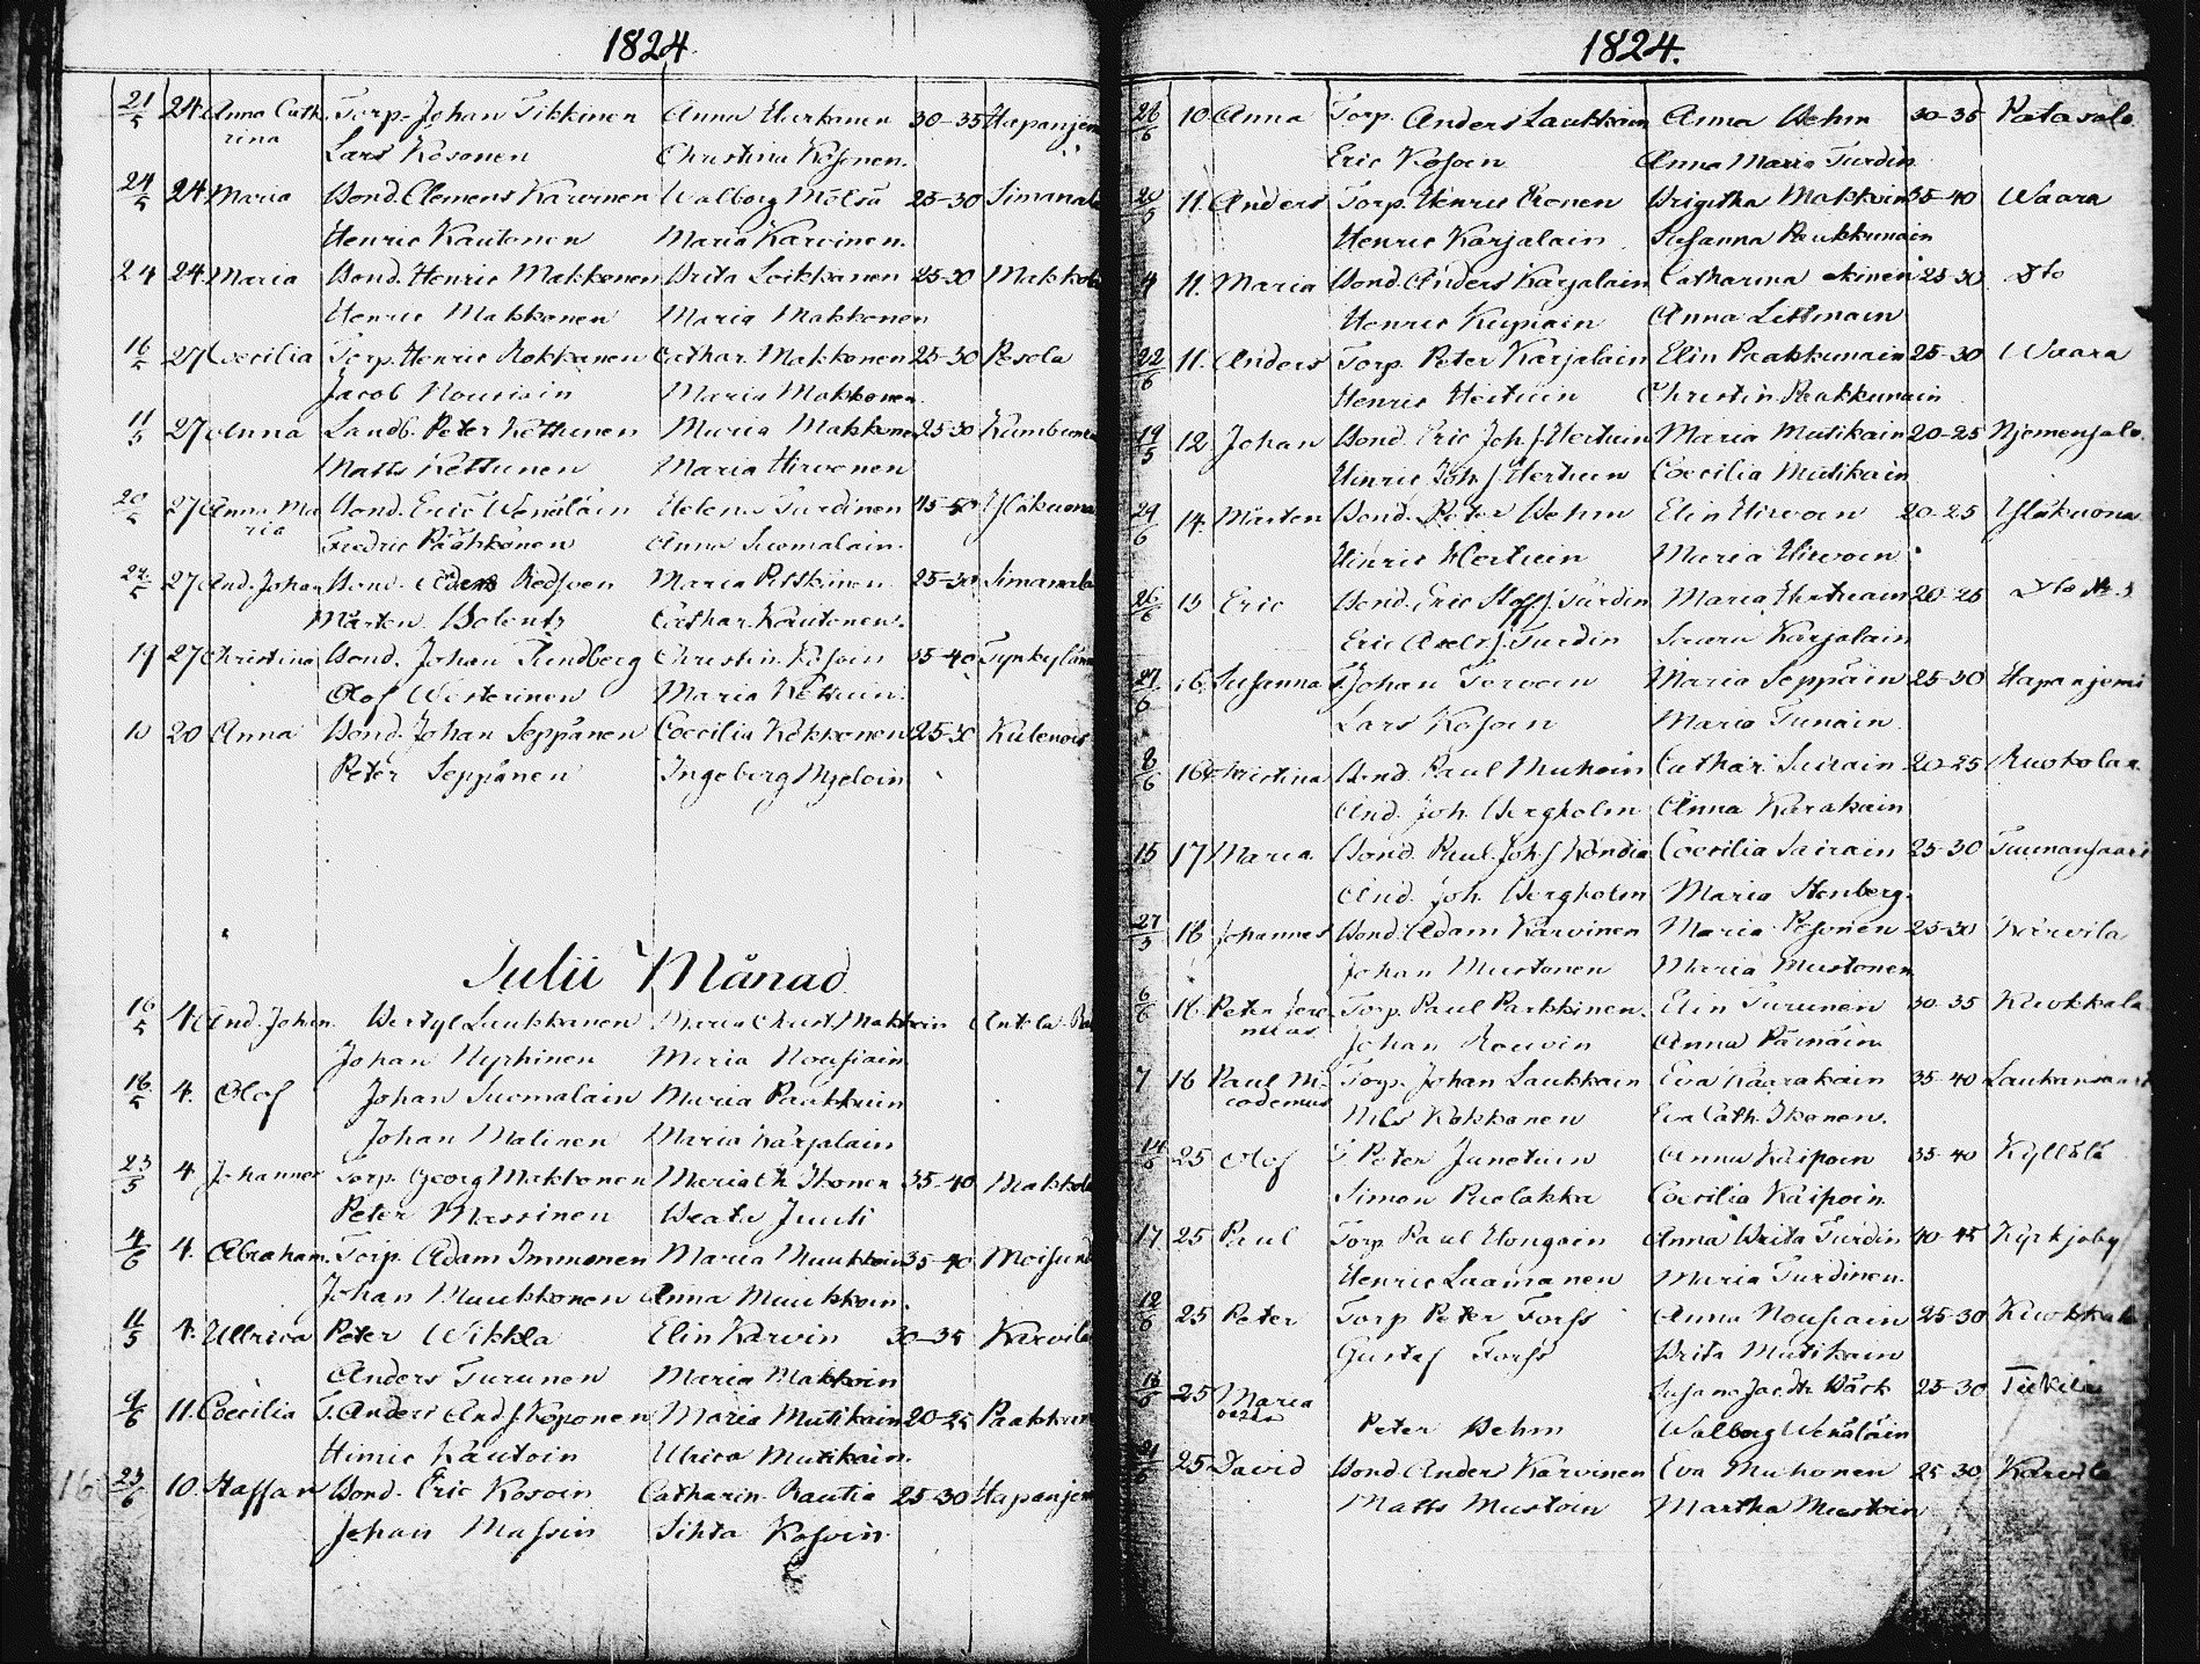 1824.
21/5 24 Anna Cath Torp. Johan Tikkinen Anna Hurkonen 30-35 Hapanjem
rina Lars Kosonen Christina Kosonen.
24/5 24 Maria Bond. Clemens Karvinen Walborg Mölsä 25-30 Simanala
Henric Kautonen Maria Karvinen.
24 24 Maria Bond. Henric Makkonen Brita Loikkanen 25-30 Makkola
Henric Makkonen Maria Makkonen
16/5 27 Coecilia Torp. Henric Rokkanen Cathar. Makkonen 25-30 Pesola
Jacob Nousiain Maria Makkonen.
11/5 27 Anna Landb. Peter Kettunen Maria Makkonen 25-30
Matts Kettunen Maria Hirvonen
20/5 27 Anna Ma Bond. Eric Wenäläin Helena Turdinen 45-50
ria Fredric Päähkönen Anna Suomalain.
27 And. Johan Bond. Maria Pitkänen 25-30 Simanala
Mårten Cathar. Kautonen.
19 27 Christina Bond. Johan Sundberg Christin. Kosoin 35-40
Olof Westerinen Maria Kettuin.
10 20 Anna Bond. Johan Seppänen Coecilia Kokkonen 25-30
Peter Seppänen Ingeborg
Julii Månad
16/5 4. And. Johan. Bertyl Laukkanen Maria Christ. Makkoin Antola
Johan Nyrhinen Maria Nousiain
16/5 4. Olof Johan Suomalain Maria Paakkuin
Johan Malinen Maria Karjalain
23/5 4 Johannes Torp. Georg Makkonen Maria Ch. Ikonen 35-40 Makkola
Peter Massinen Beata Juuti
4/6 4. Abraham. Torp. Adam Immonen Maria Muukkoin 35-40 Moisund
Johan Muukkonen Anna Muukkoin.
11/5 4. Ullrica Peter Wikkla Elin Karvin 30-35 Karvila
Anders Turunen Maria Makkoin
9/6 11. Coecilia T. Anders And. J. Koponen Maria Mutikain 20-25
Hinric Kautoin Ulrica Mutikain.
23/6 10. Staffan Bond. Eric Kosoin Catharin. Rautia 25-30 Hapanjem
Johan Massin Sihta Kosoin.
1824.
28/6 10. Anna Torp. Anders Laukkain Anna Behm 30-35 Patasalo.
Eric Kosoin Anna Maria Turdin
20/5 11. Anders Torp. Henric Ikonen Brigitha Makkoin 35-40 Waara
Henric Karjalain Susanna Paakkunain
4 11. Maria Bond. Anders Karjalain Catharina 25-30 Dto
Henric Kupiain Anna Littmain
22/6 11. Anders Torp. Peter Karjalain Elin Paakkunain 25-30 Waara
Henric Hertuin Christin. Paakkunain
19/5 12 Johan Bond. Eric Joh. S. Hertuin Maria Mutikain 20-25 Njemensalo.
Hinric Joh. S. Hertuin Coecilia Mutikain
24/6 14. Mårten Bond. Peter Behm Elin Hirvoin 20-25
Hinric Hertuin Maria Hirvoin
26/6 15 Eric Bond. Eric Staff. S. Turdin Maria 20-25 Dto
Eric Axels S. Turdin Karjalain
27/6 16. Susanna T. Johan Torvoin Maria Seppäin 25-30 Hapanjemi
Lars Kosoin Maria Tunain
8/6 16 Christina Bond. Paul Muhoin Cathar. Sairain 20-25 Ruokolax.
And. Joh. Bergholm Anna Karakain
15 17 Maria. Bond. Paul Joh. S. Kondia Coecilia Sairain 25-30 Tuunansaari
And. Joh. Bergholm Maria Stenberg.
27/5 18 Johannes Bond. Adam Karvinen Maria Pesonen 25-30 Karvila
Johan Mustonen Maria Mustonen
6/6 18. Peter Jere Torp. Paul Parkkinen. Elin Turunen 30-35 Kuokkala
mias Johan Rouvin Anna Painain
7 18 Paul Ni Torp. Johan Laukkain Eva Kaarakain 35-40 Laukansaari
codemus Nils Kokkonen Eva Cath. Ikonen.
14/6 25 Olof T. Peter Junetuin Anna Kaipoin 35-40 Kyllölä
Simon Puolakka Coecilia Kaipoin.
17 25 Paul Torp. Paul Hongoin Anna Brita Turdin 40-45 Kyrkjoby
Henric Laamanen Maria Turdinen.
12/6 25 Peter Torp. Peter Forss Anna Nousiain 25-30 Kuokkala
Gustaf Forss Brita Mutikain
18/6 25 Maria oägta 25-30
Peter Behm Walborg Wenäläin
21/6 25 David Bond. Anders Karvinen Eva Muhonen 25-30 Karvila
Matts Mustoin Martha Mustoin